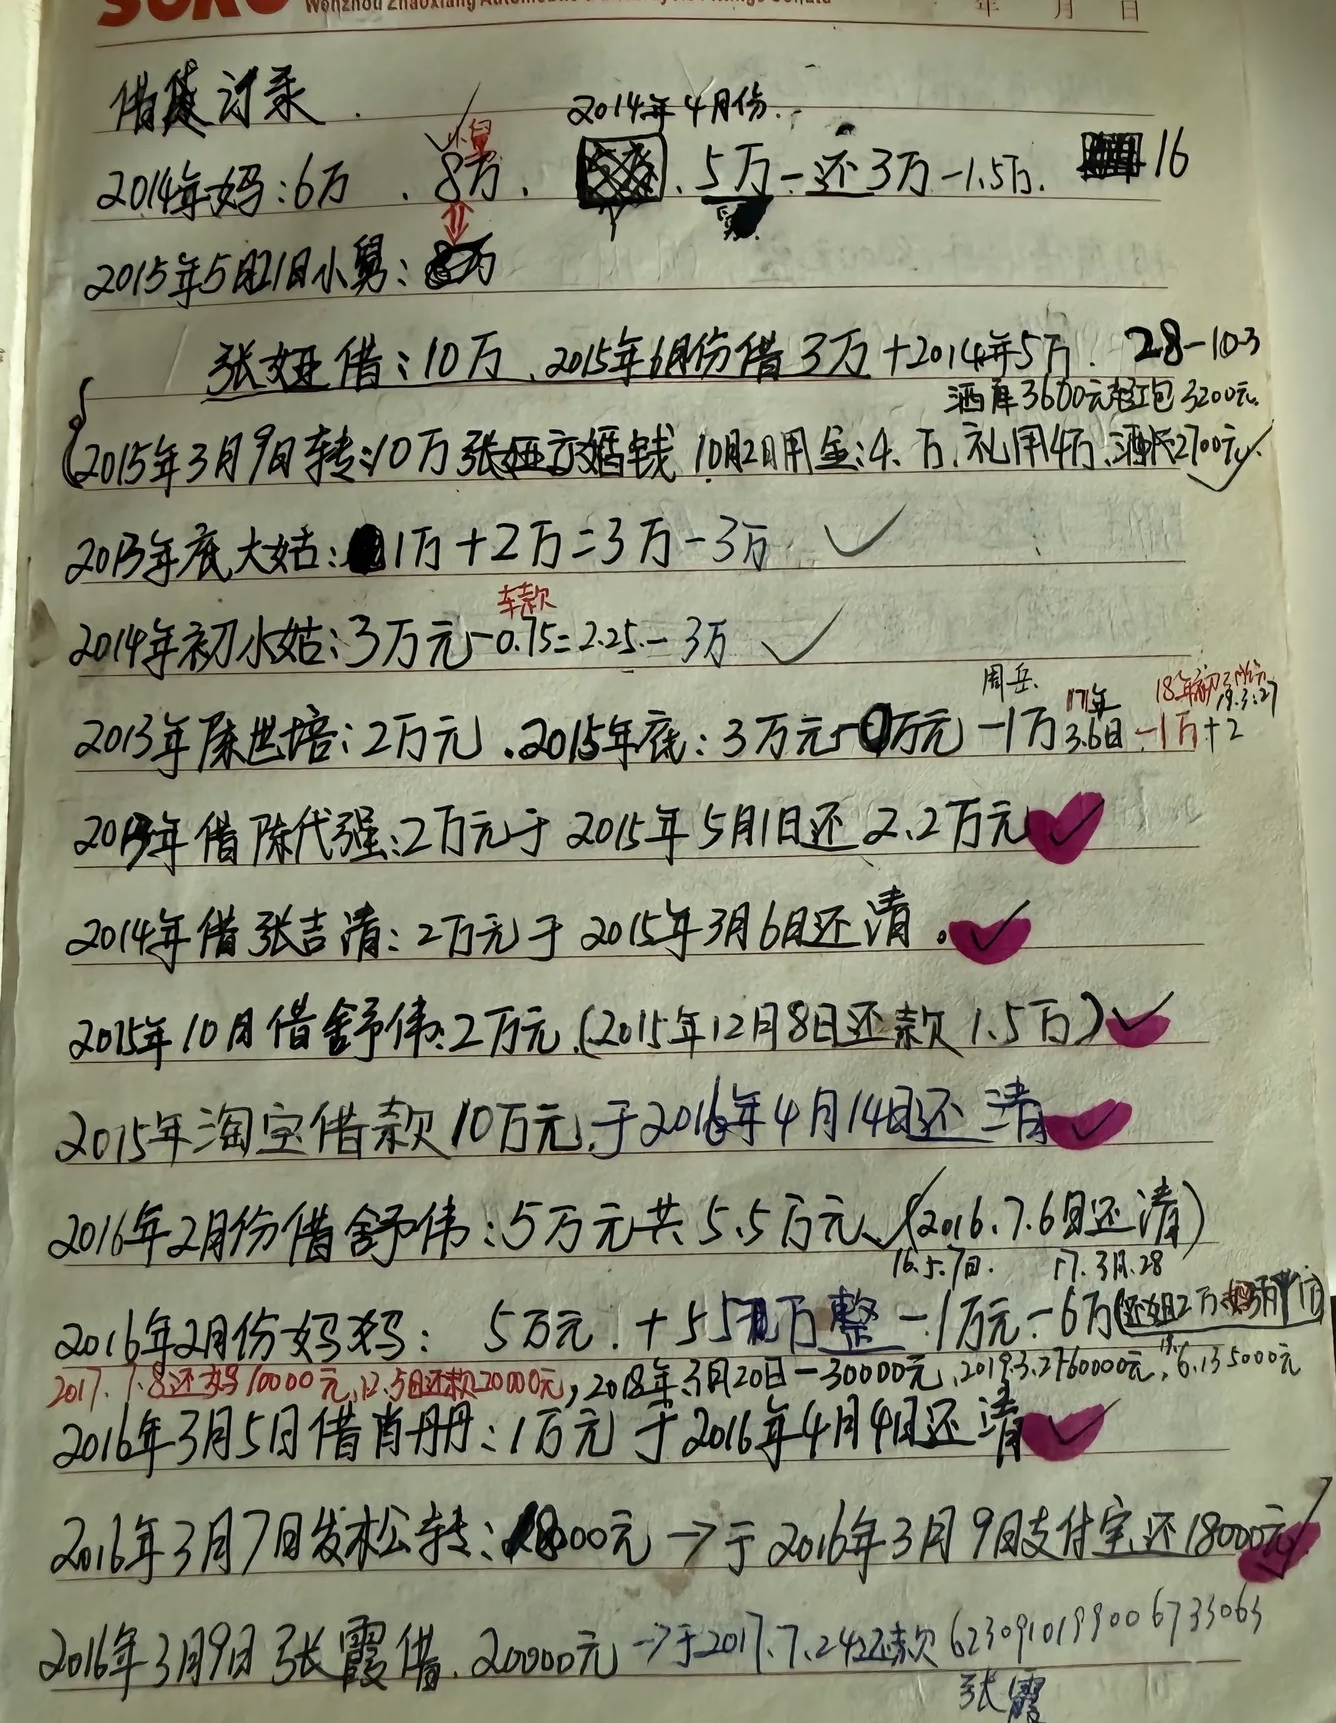 年 月 日
借贷记录.
2014年4月份.
小舅
2014年妈:6万 . 8万. . 5万-还3万-1.5万. 16
2015年5月21日小舅:
张娅借:10万.2015年6月份借3万+2014年5万. 28-10-3
酒席3600元红包3200元.
2015年3月9日转:10万张娅 婚钱 10月2日用金:4.万.礼用4万.酒 2700元
2013年底大姑: 1万+2万=3万-3万
车款
2014年初小姑:3万元-0.75=2.25.-3万
周岳. 17年 18年初 19.3.27
2013年陈世培:2万元.2015年底:3万元- 万元-1万 3.6日 -1万+2
年借陈代强:2万元于2015年5月1日还2.2万元
2014年借张吉清:2万元于2015年3月6日还清.
2015年10月借舒伟:2万元.(2015年12月8日还款1.5万)
2015年淘宝借款10万元.于2016年4月14日还清
2016年2月份借舒伟:5万元共5.5万元.(2016.7.6日还清)
16.5.7日. 17.3月.28
2016年2月份妈妈: 5万元.+5 万整-1万元-6万(还姐2万
2017.7.8还妈10000元,12.5日还款20000元,2018年3月20日-30000元,2019.3.2760000元, 6.13 5000元
2016年3月5日借肖丹丹:1万元于2016年4月4日还清
2016年3月7日发松转:18000元→于2016年3月9日支付宝还18000元
2016年3月9日张霞借.20000元→于2017.7.24还款6230910199006733063
张霞